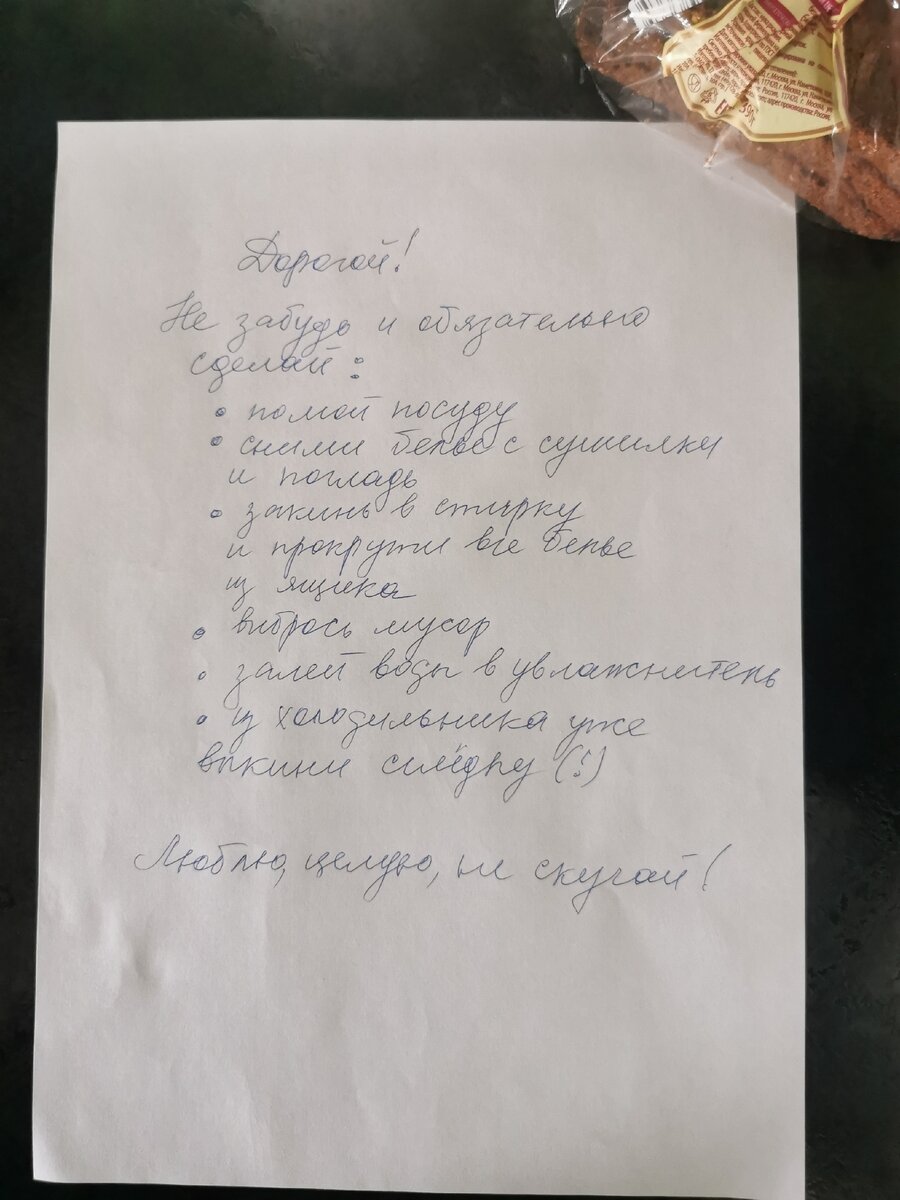 Дорогой!
Не забудь и обязательно
сделай:
• помой посуду
• сними белье с сушилки
и погладь
• закинь в стирку
и прокрути все белье
из ящика
• выбрось мусор
• залей воды в увлажнитель
• из холодильника уже
выкини селёдку (!)
Люблю, целую, не скучай!